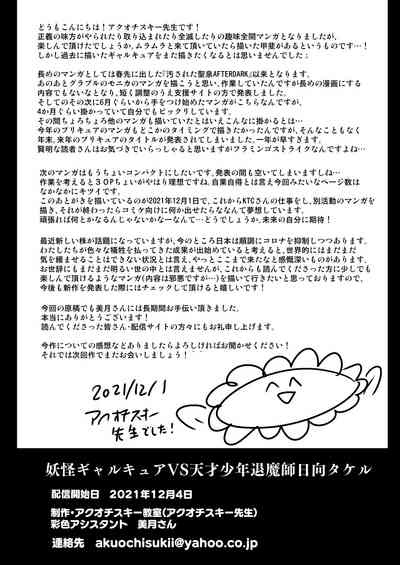 どうもこんにちは！アクオチスキー先生です！
正義の味方がやられたり取り込まれたり全滅したりの趣味全開マンガとなりましたが、
楽しんで頂けたでしょうか、ムラムラと来て頂いていたら描いた甲斐があるというものです…！
しかし過去に描いたギャルキュアをまた描きたくなるとは思いませんでした；
長めのマンガとしては春先に出した『汚された聖泉AFTERDARK』以来となります。
あのあとグラブルのモニカのマンガを描こうと思い、作業していたんですが長めの漫画にする
内容でもないなとなり、短く調整のうえ支援サイトの方で発表しました。
そしてのその次に6月ぐらいから手をつけ始めたマンガがこちらなんですが、
4か月ぐらい掛かっていて自分でもビックリしています。
その間ちょろちょろ他のマンガも描いていたとはいえこんなに掛かるとは…
今年のプリキュアのマンガもどこかのタイミングで描きたかったんですが、そんなこともなく
年末、来年のプリキュアのタイトルが発表されてしまいました、一年が早すぎます。
賢明な読者さんはお気づきでいらっしゃると思いますがフラミンゴストライクなんですよね…
次のマンガはもうちょいコンパクトにしたいです。発表の間も空いてしまいますしね…
作業を考えると３０Ｐちょいがやはり理想ですね。自業自得とは言え今回みたいなページ数は
なかなかにキツイです。
このあとがきを描いているのが2021年12月1日で、これからKTCさんの仕事をし、別活動のマンガを
描き、それが終わったらコミケ向けに何か出せたらななんて夢想しています。
頑張れば何とかなるんじゃないかなーなんて…どうでしょうか、未来の自分に期待！
最近新しい株が話題になっていますが、今のところ日本は順調にコロナを抑制しつつあります。
わたしたちが色々な犠牲を払ってきた成果が出始めていると考えると、世界的にはまだまだ
気を緩ませることはできない状況とは言え、やっとここまで来たなと感慨深いものがあります。
お世辞にもまだまだ明るい世の中とは言えませんが、これからも読んでくださった方に少しでも
楽しんで頂けるようなマンガ(内容は邪悪ですが…)を描いて行きたいと思っておりますので、
今後も新作を発表した際にはチェックして頂けると嬉しいです！
今回の原稿でも美月さんには長期間お手伝い頂きました。
本当にありがとうございます！
読んでくださった皆さん・配信サイトの方々にもお礼申し上げます。
今作についての感想などありましたらよろしければお聞かせください！
それでは次回作でまたお会いしましょう！
2021/12/1
アクオチスキー
先生でした！
妖怪ギャルキュアVS天才少年退魔師日向タケル
配信開始日　2021年12月4日
制作・アクオチスキー教室(アクオチスキー先生)
彩色アシスタント　美月さん
連絡先　akuochisukii@yahoo.co.jp